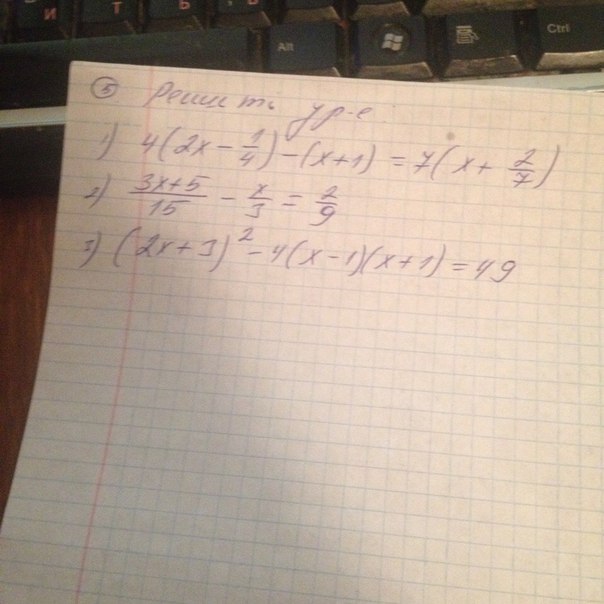 И Т Ь
Alt Ctrl
⑤ Решить ур-е
1) 4(2x - 1/4) - (x+1) = 7(x + 2/7)
2) (3x+5)/15 - x/3 = 2/9
3) (2x+3)² - 4(x-1)(x+1) = 49